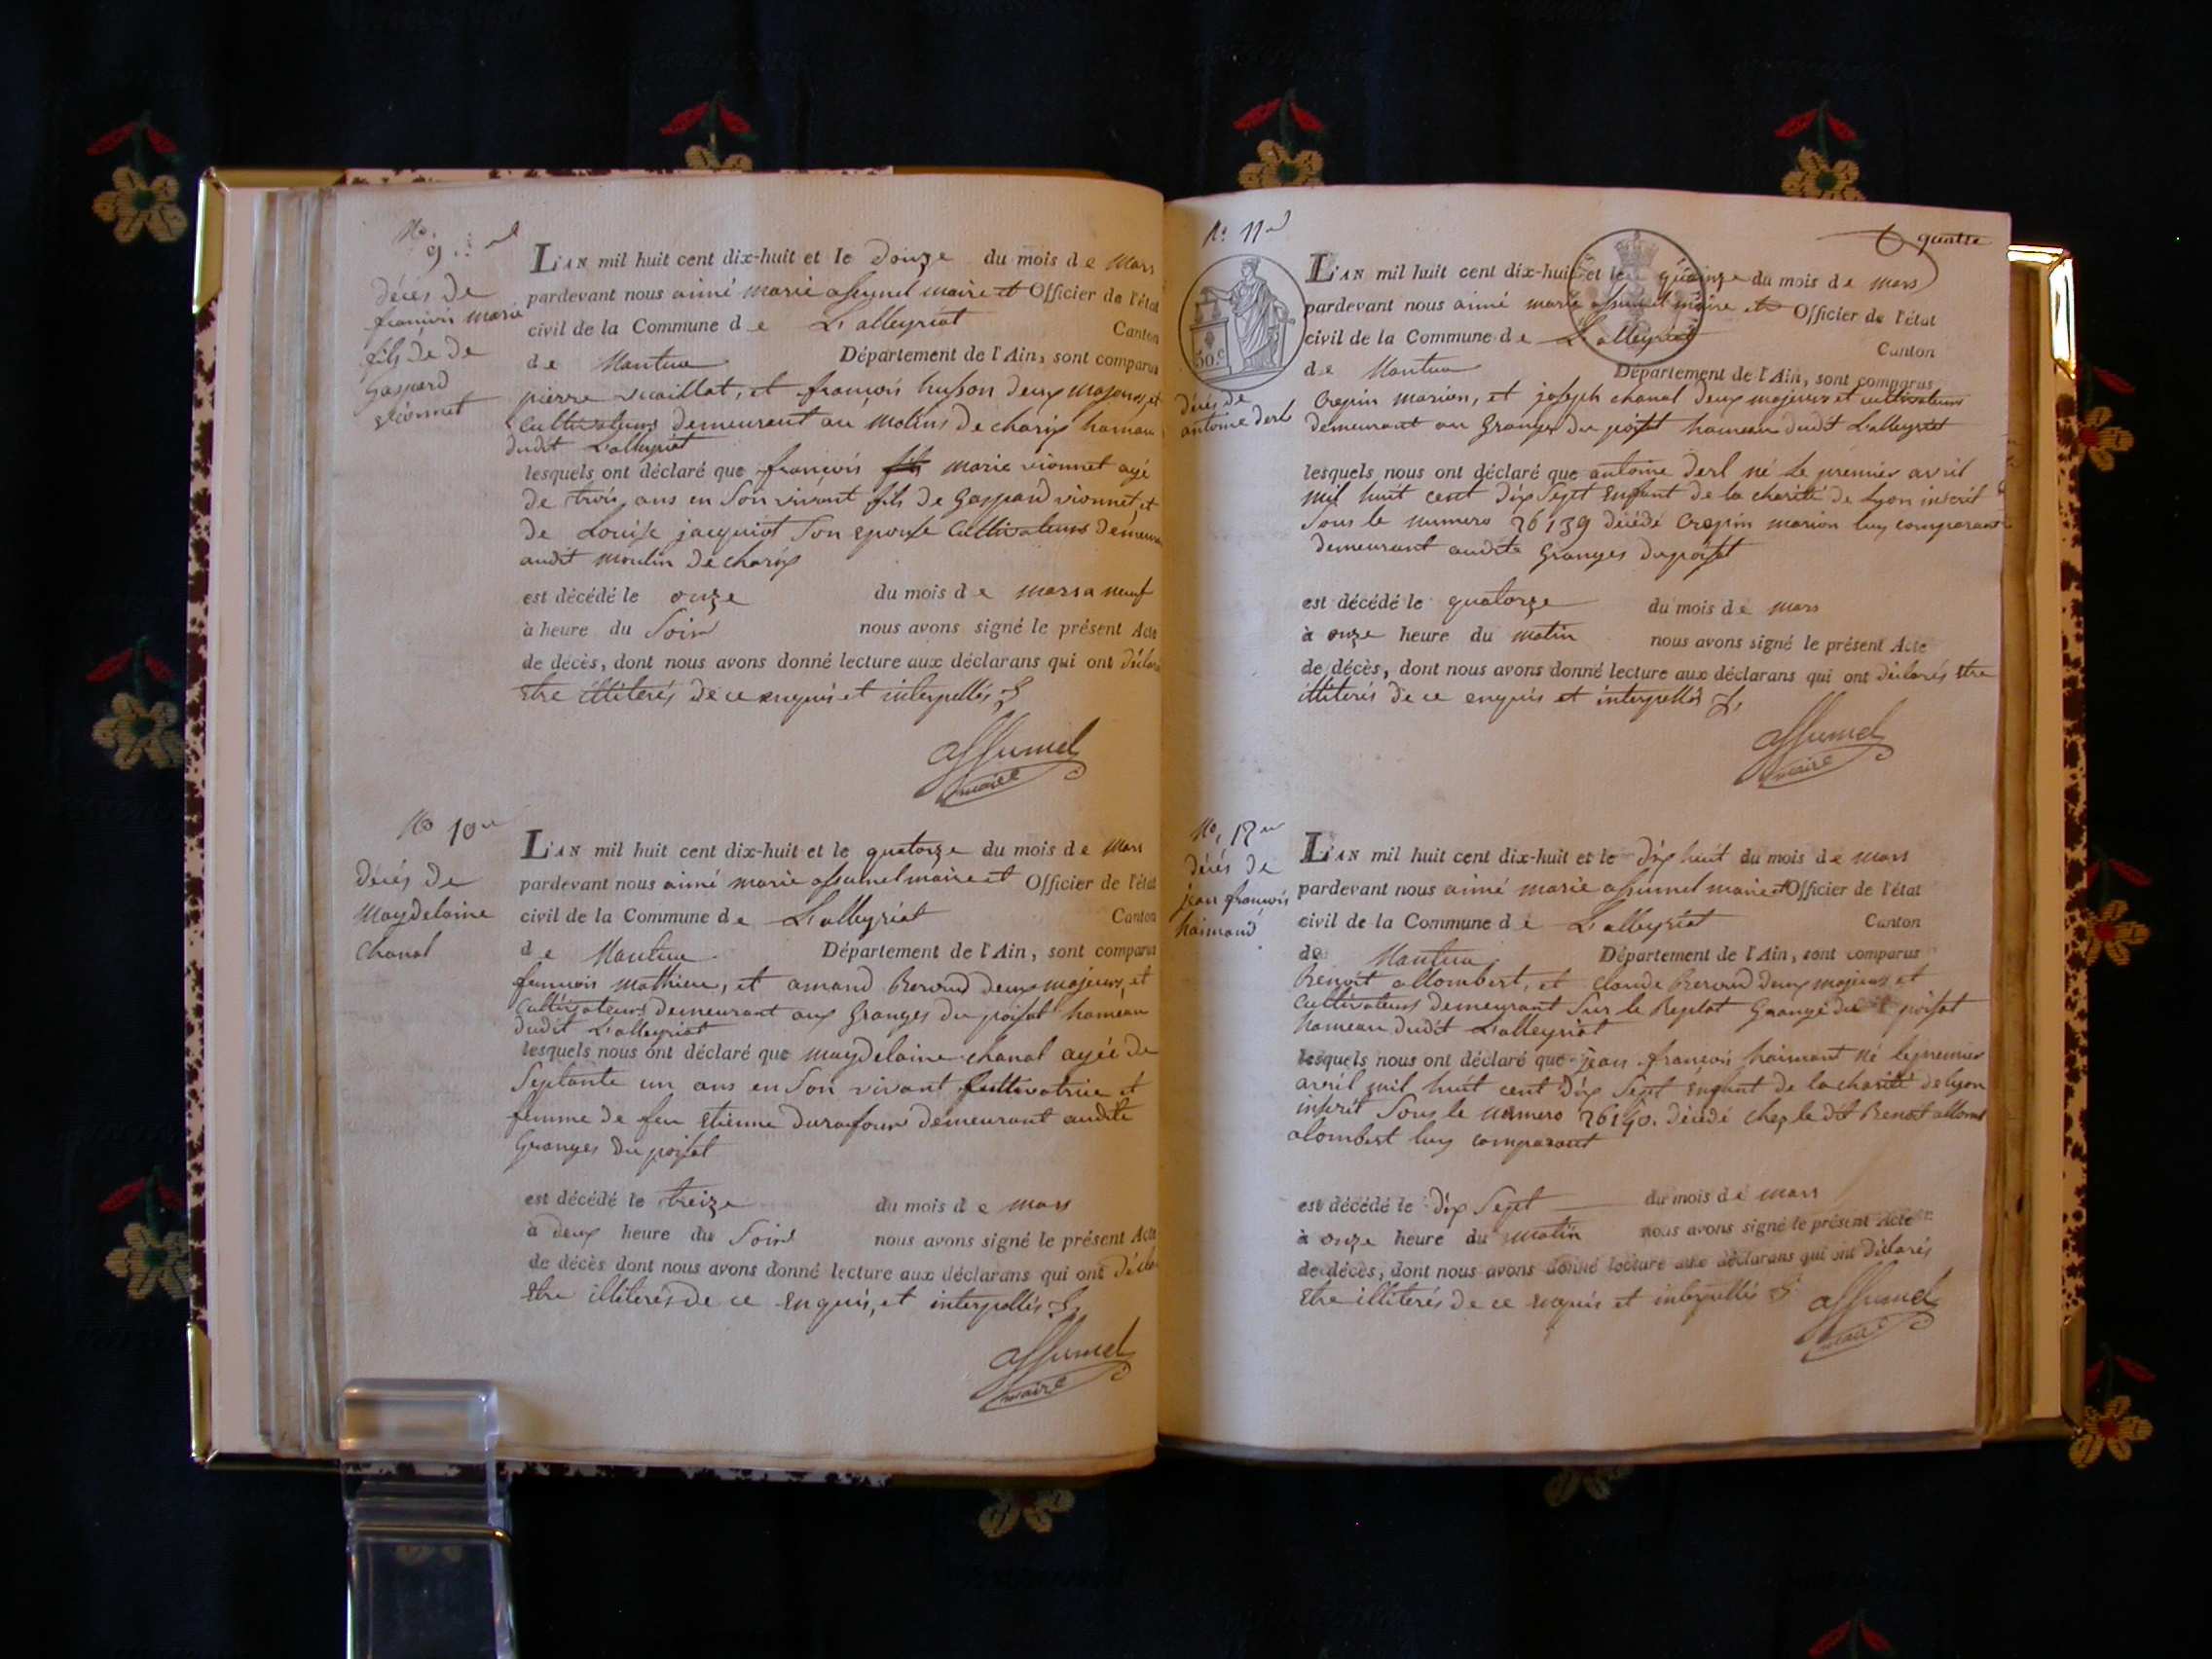 No. 9.
décès de
françois marie
fils de de
Gaspard
vionnet
L'AN mil huit cent dix-huit et le douze du mois de Mars
pardevant nous aimé marie assumel maire et Officier de l'état
civil de la Commune de L'alleyriat Canton
de Nantua Département de l'Ain, sont comparus
pierre et françois husson deux majeurs, et
Cultivateurs demeurant au Molins de charix hamau
dudit L'alleyriat
lesquels ont déclaré que françois fils marie vionnet agé
de trois ans en Son vivant fils de Gaspard vionnet, et
de Louise jacquiot Son epouse Cultivateurs demeur
audit moulin de charix
est décédé le onze du mois de mars a neuf
à heure du Soir nous avons signé le présent Acte
de décès, dont nous avons donné lecture aux déclarans qui ont déclar
Etre illiterés de ce enquis et interpellés
assumel
maire
No 10
Décés de
Maydelaine
Chanal
L'AN mil huit cent dix-huit et le quatorze du mois de Mars
pardevant nous aimé marie assumel maire et Officier de l'état
civil de la Commune de L'alleyriat Canton
de Nantua Département de l'Ain, sont comparus
francois mathieu, et amand Berrod deux majeurs, et
Cultivateurs demeurant aux Granges du poisat hameau
dudit L'alleyriat
lesquels nous ont déclaré que maydelaine chanal agée de
Septante un ans en Son vivant Cultivatrice et
femme de feu Etienne durafour demeurant audite
Granges du poisat
est décédé le treize du mois de mars
à deux heure du Soir nous avons signé le présent Acte
de décès dont nous avons donné lecture aux déclarans qui ont décla
Etre illiterés de ce Enquis, et interpellés
assumel
maire
No 11
quatre
50 c
décés de
antoine derl
L'AN mil huit cent dix-huit et le quinze du mois de mars
pardevant nous aimé marie assumel maire et Officier de l'état
civil de la Commune de L'alleyriat Canton
de Nantua Département de l'Ain, sont comparus
Crepin marion, et joseph chanal deux majeurs et cultivateurs
demeurant au Granges du poisat hameau dudit L'alleyriat
lesquels nous ont déclaré que antoine derl né le premier avril
mil huit cent dix Sept Enfant de la charité de Lyon inscrit
Sous le numero 26139 décédé Crepin marion luy comparant
demeurant audite Granges du poisat
est décédé le quatorze du mois de mars
à onze heure du matin nous avons signé le présent Acte
de décès, dont nous avons donné lecture aux déclarans qui ont déclarés Etre
illiterés de ce enquis et interpellés
assumel
maire
No, 12
décés de
jean françois
haimand
L'AN mil huit cent dix-huit et le dix huit du mois de mars
pardevant nous aimé marie assumel maire et Officier de l'état
civil de la Commune de L'alleyriat Canton
de Nantua Département de l'Ain, sont comparus
Benoit allombert, et claude Berrod deux majeurs et
Cultivateurs demeurant Sur le Replat Grange du poisat
hameau dudit L'alleyriat
lesquels nous ont déclaré que jean françois haimant né le premier
avril mil huit cent dix Sept Enfant de la charité de lyon
inscrit Sous le numero 26140. décédé chez le dit Benoit allom
alombert luy comparant
est décédé le dix Sept du mois de mars
à onze heure du matin nous avons signé le présent Acte
de décès, dont nous avons donné lecture aux déclarans qui ont déclarés
Etre illiterés de ce Enquis et interpellés
assumel
maire